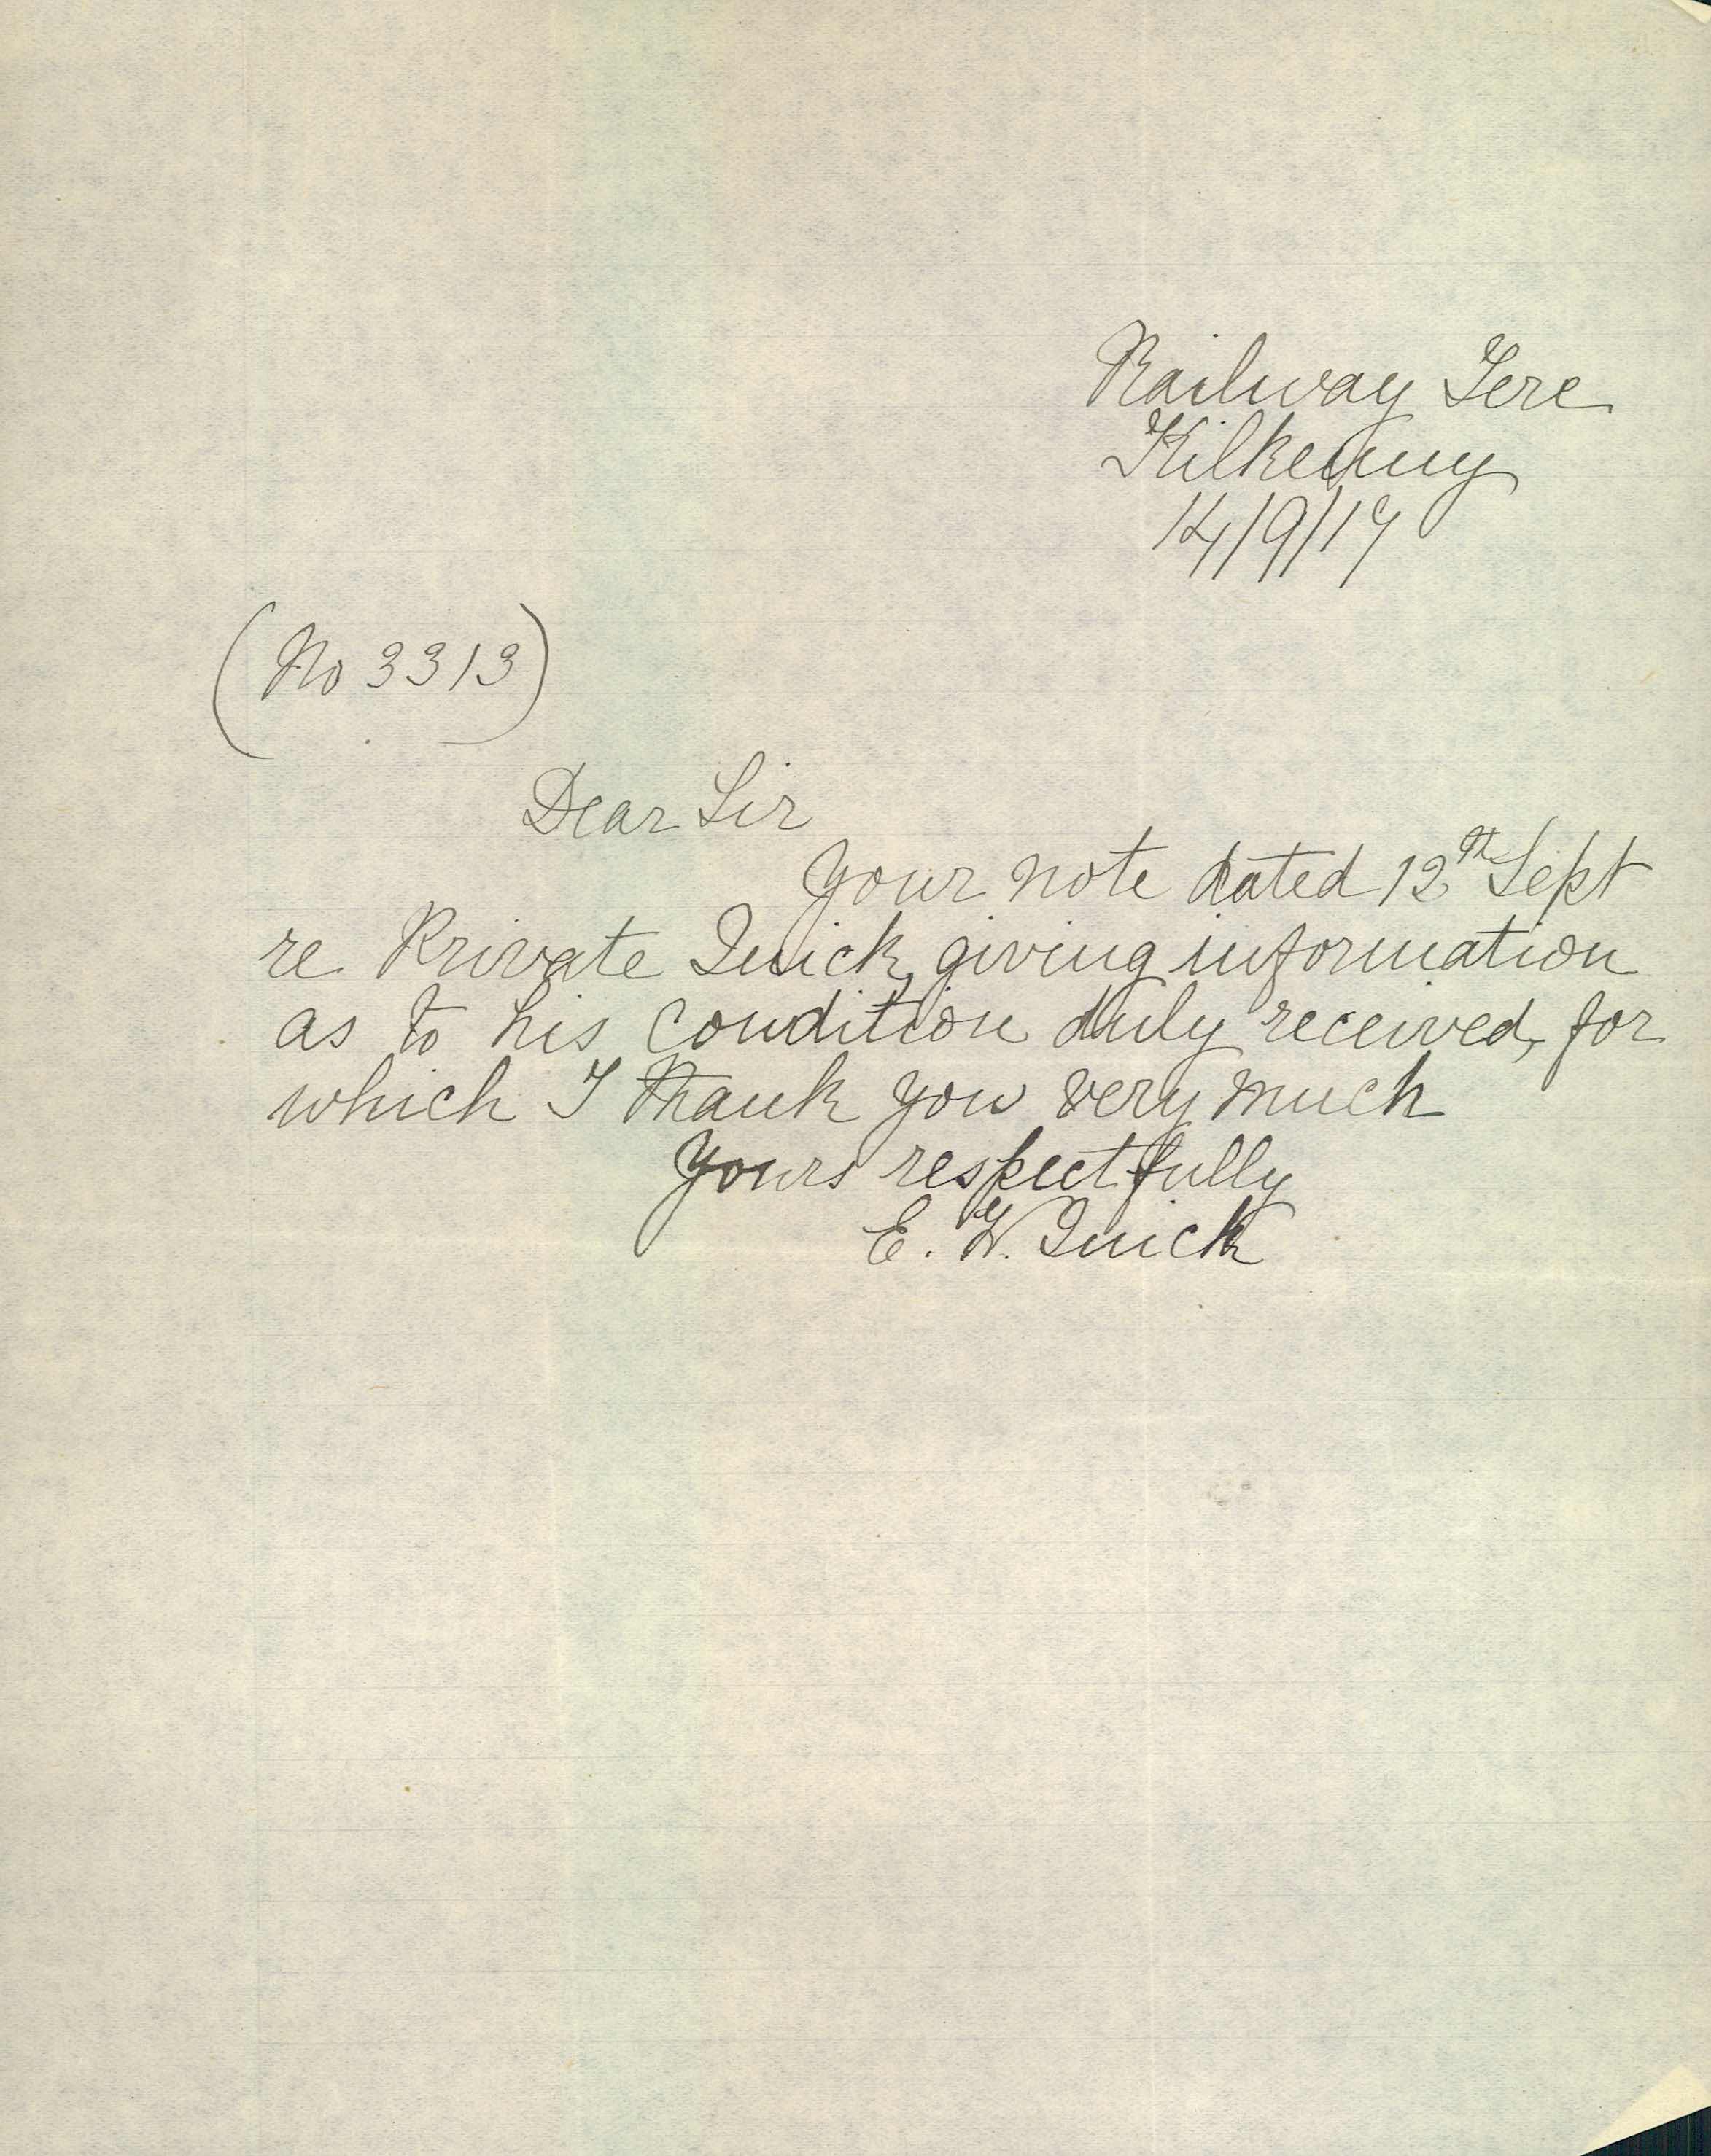 Railway Tere
Kilkenny
14/9/17
(No 3313)
Dear Sir
Your note dated 12th Sept
re Private Quick, giving information
as to his condition duly received, for
which I thank you very much
Yours respectfully
E. W. Quick